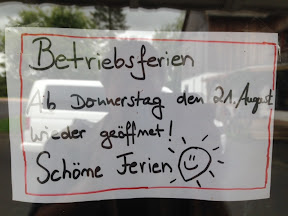 Betriebsferien
Ab Donnerstag den 21. August
wieder geöffnet!
Schöne Ferien